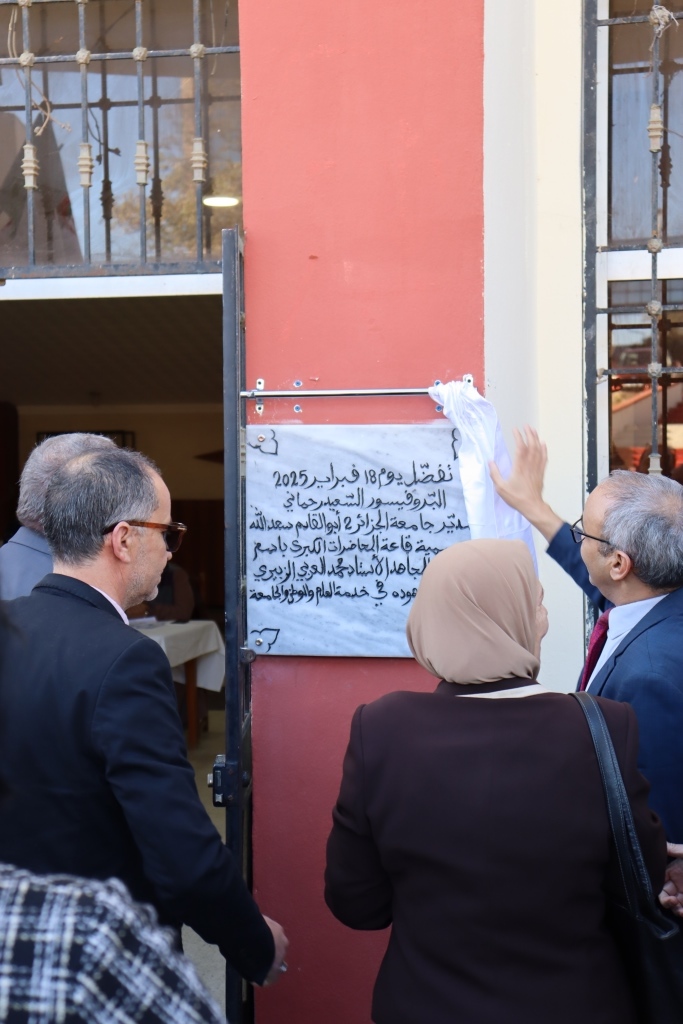 تفضّل يوم 18 فبراير 2025
البروفيسور السّعيد رحماني
مدير جامعة الجزائر 2 أبو القاسم سعد الله
قاعة المحاضرات الكبرى باسم
المجاهد الأستاذ محمد العربي الزبيري
في خدمة العلم والوطن والجامعة